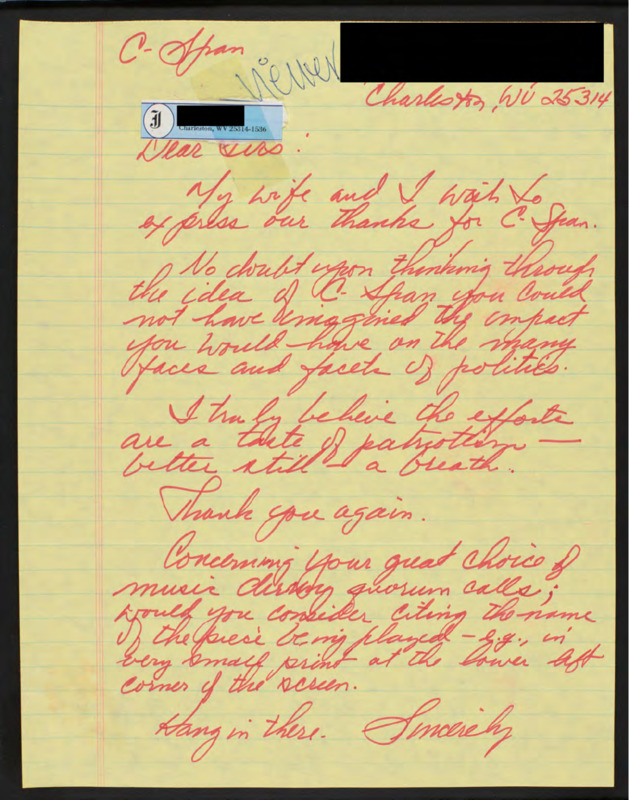 C-Span
viewer
Charleston, WV 25314
J
Charleston, WV 25314-1536
Dear Sirs:
My wife and I wish to
express our thanks for C-Span.
No doubt upon thinking through
the idea of C-Span you could
not have imagined the impact
you would have on the many
faces and facets of politics.
I truly believe the efforts
are a taste of patriotism —
better still — a breath.
Thank you again.
Concerning your great choice of
music during quorum calls;
would you consider citing the name
of the piece being played - e.g., in
very small print at the lower left
corner of the screen.
Hang in there. Sincerely